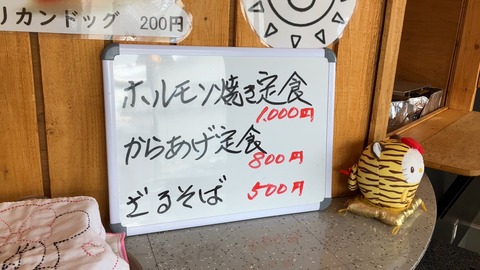 リカンドッグ 200円
ホルモン焼き定食
1,000円
からあげ定食
800円
ざるそば
500円